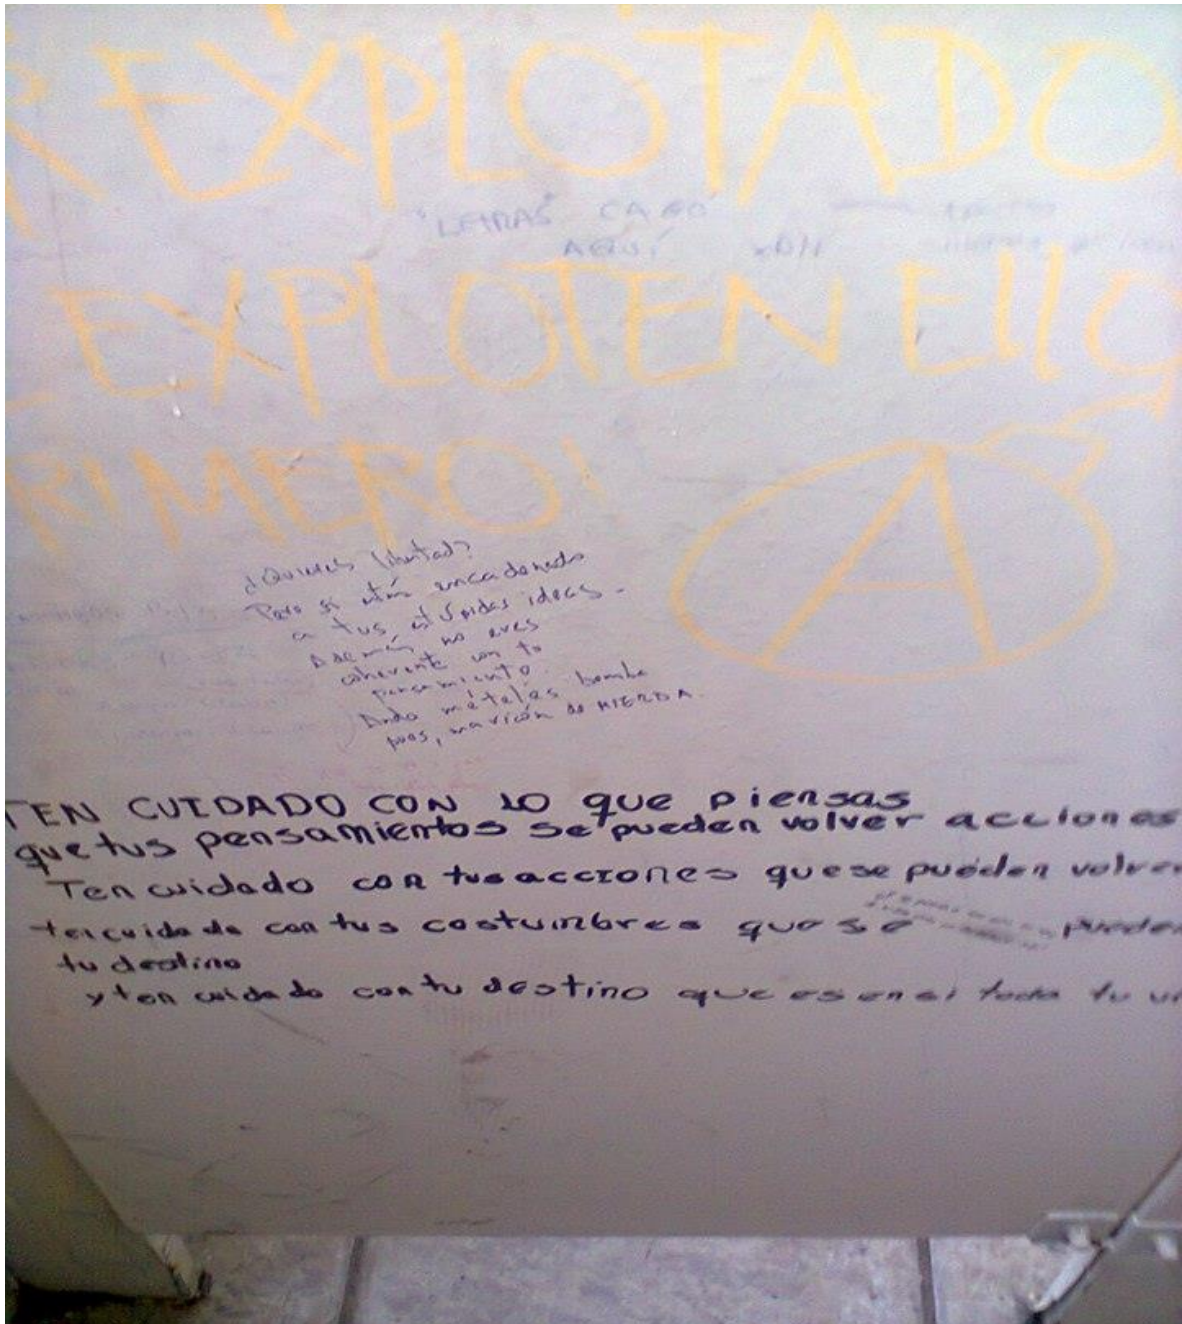 R EXPLOTADO
"LETRAS" CAGÓ
AQUÍ xDM
EXPLOTEN EllO
RIMERO!
A
¿Quieres libertad?
Pero si estás encadenado
a tus estúpidas ideas.
Además, no eres
coherente con tu
pensamiento.
Anda mételes bomba
pues, maricón de MIERDA.
TEN CUIDADO CON LO que piensas
que tus pensamientos se pueden volver acciones
Ten cuidado con tus acciones que se pueden volver
ten cuidado con tus costumbres que se pueden
tu destino
y ten cuidado con tu destino que es en si toda tu vi